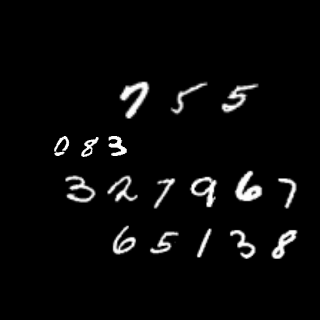 755
083
327967
65138